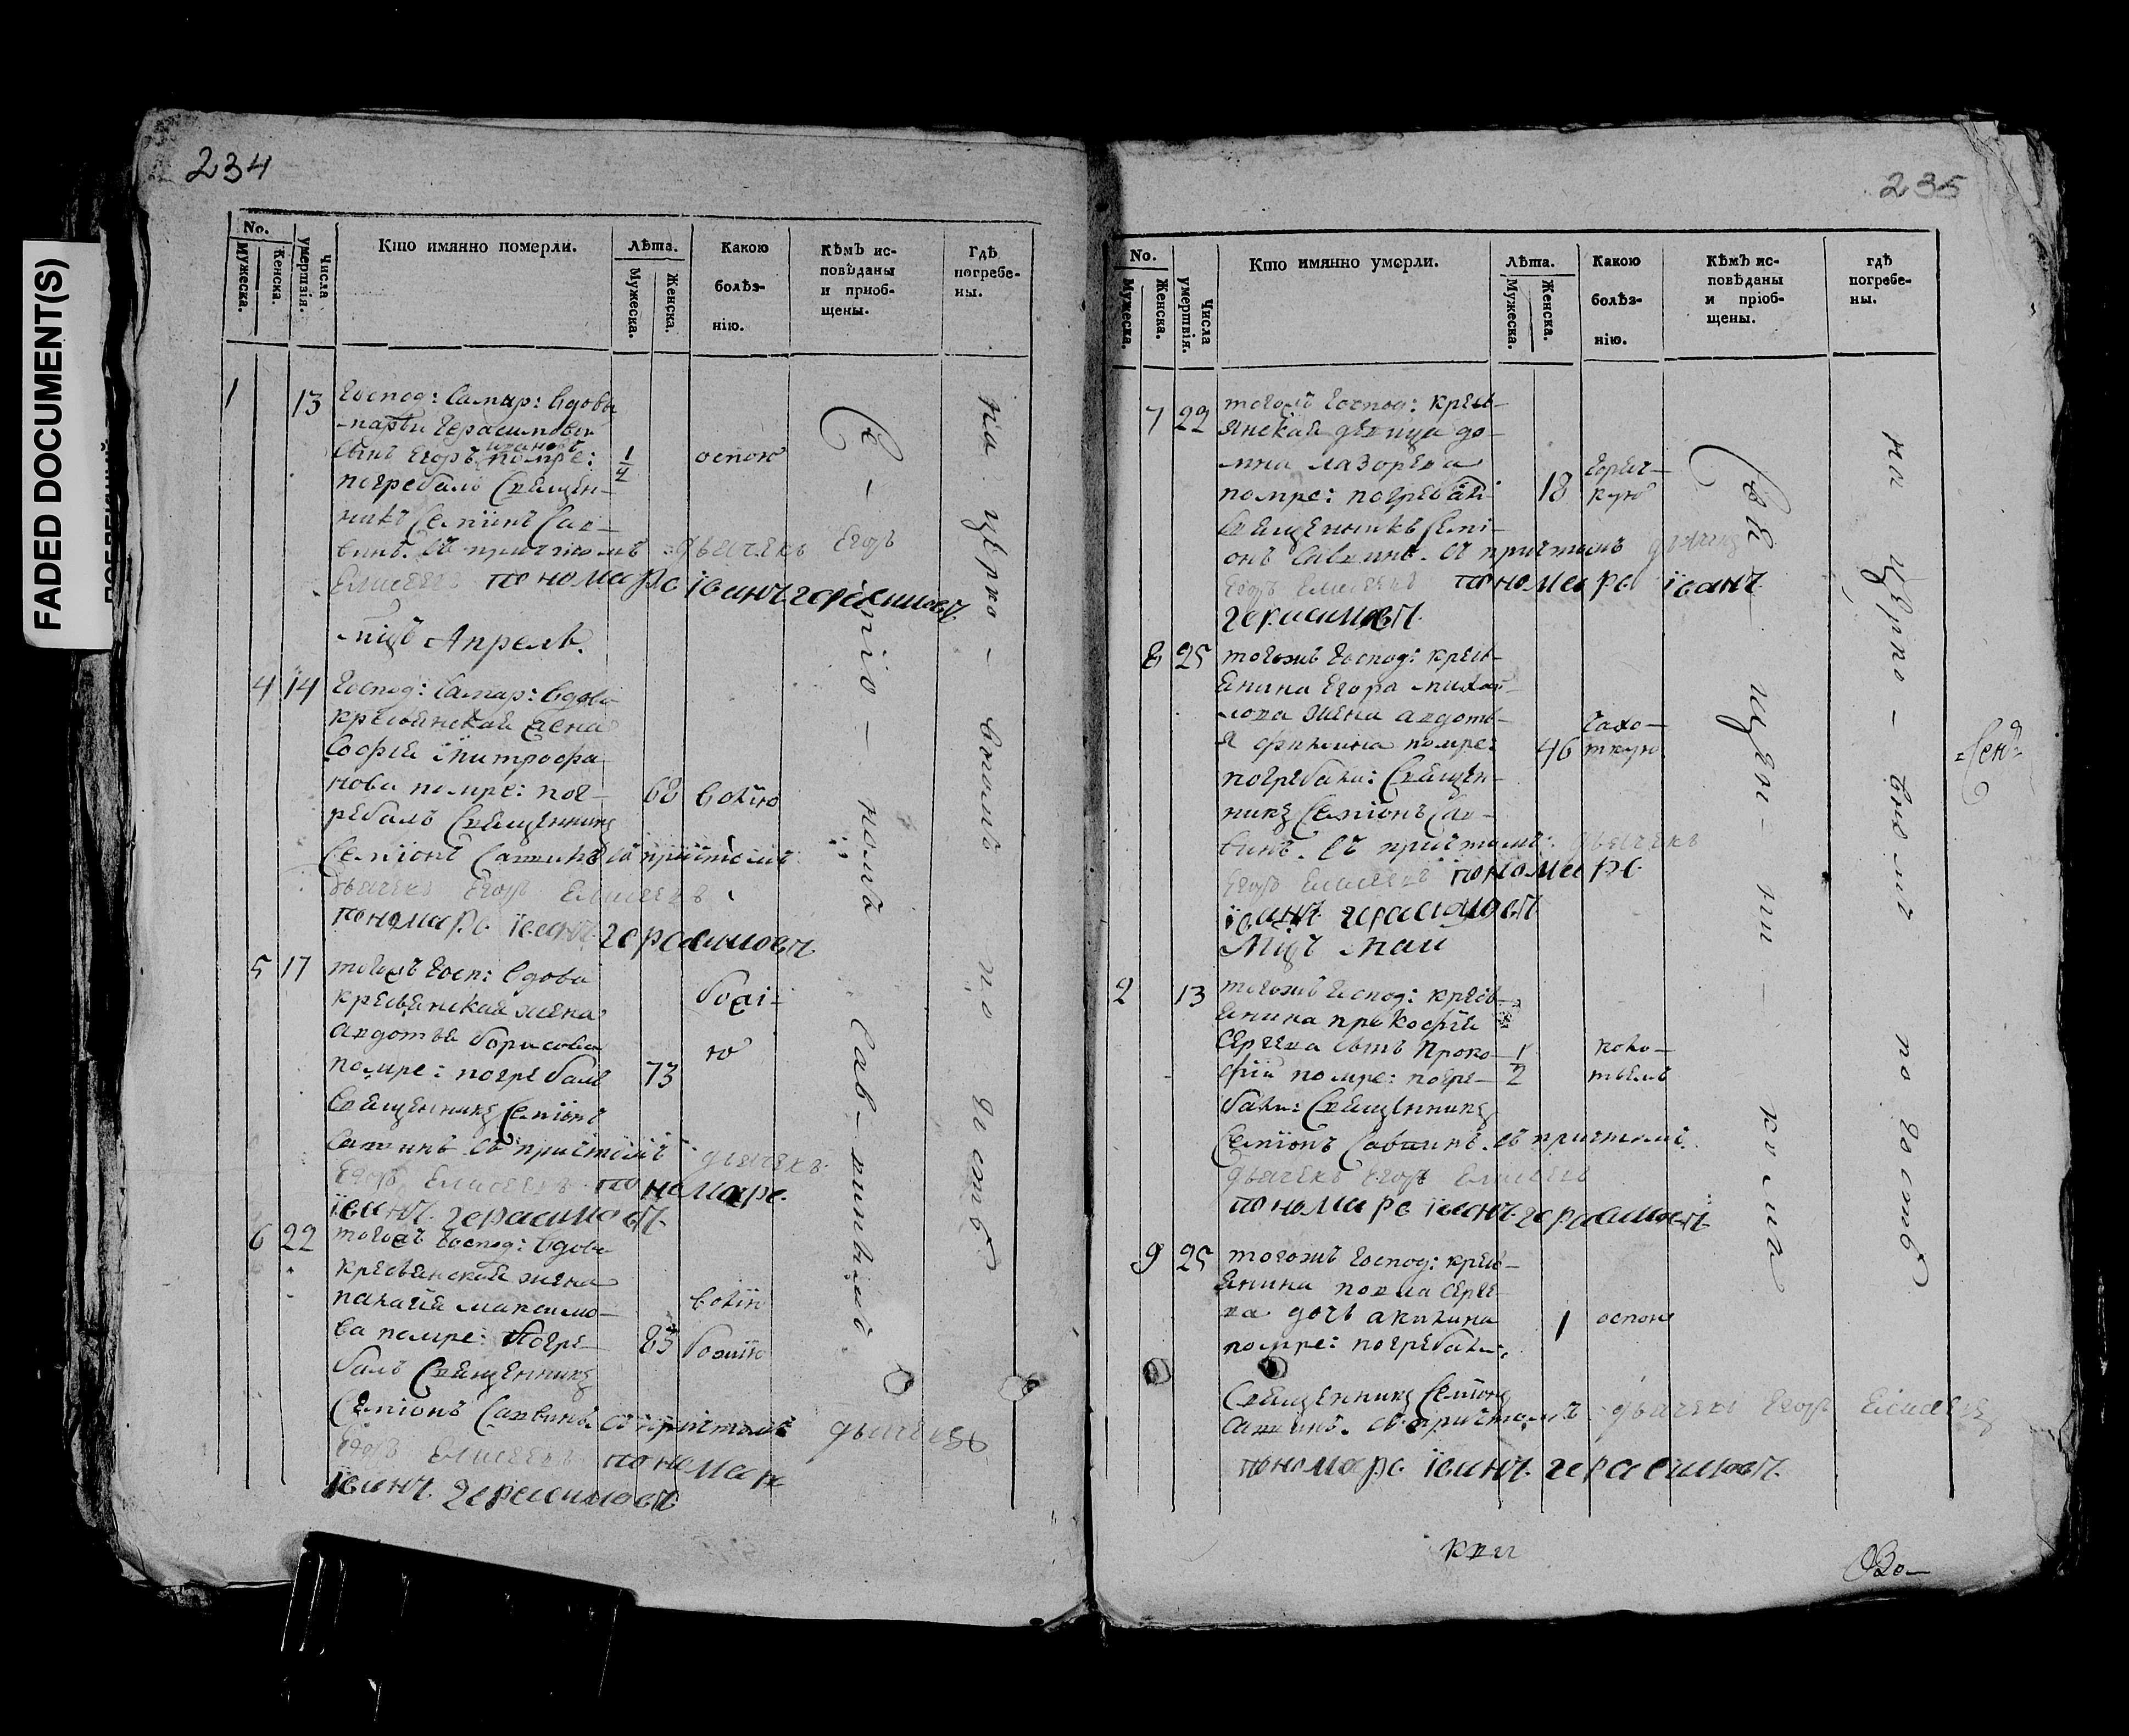 FADED DOCUMENT(S)
234
No.
Мужеска.
Женска.
Числа умертвія.
Кто имянно померли.
Лѣта.
Мужеска.
Женска.
Какою болѣз-
нію.
Кѣмъ ис-
повѣданы
и приоб-
щены.
гдѣ
погребе-
ны.
1
13
Господ: Самар: вдовы
Герасимовы
сынъ Егоръ помре:
погребалъ Священ-
никъ Семіонъ Сав-
винъ. съ причтомъ дьячекъ Егоръ
Елисеевъ пономарь Іванъ герасимовъ
1/4
оспою
мцъ Апрель.
4
14
Господ: Самар: вдова
кресьянская жена
Софья Митрофа
нова помре: пог-
ребалъ Священникъ
Семіонъ Саввинъ съ причтомъ
дьячекъ Егоръ Елисеевъ
пономарь Іванъ герасимовъ
68
5
17
тогожъ Госп: вдова
кресьянская жена
авдотья борисова
помре: погребалъ
Священникъ Семіонъ
Саввинъ съ причтомъ дьячекъ
Егоръ Елисеевъ пономарь
Іванъ герасимовъ
73
6
22
тогожъ Господ: вдова
кресьянская жена
палагія максимо-
ва помре: Погре-
балъ Священникъ
Семіонъ Саввинъ съ причтомъ дьячекъ
Егоръ Елисеевъ пономарь
Іванъ герасимовъ
83
Се-
міо-
номъ
Сав-
виннымъ
на церко-
вномъ
по
гостѣ
235
No.
Мужеска.
Женска.
Числа умертвія.
Кто имянно умерли.
Лѣта.
Мужеска.
Женска.
Какою
болѣз-
нію.
Кѣмъ ис-
повѣданы
и пріоб-
щены.
гдѣ
погребе-
ны.
7
22
тогожъ Господ: кресь-
янская дѣвица до-
мна лазорева
помре: погребали
Священникъ Семі-
онъ Саввинъ. съ причтомъ дьячекъ
Егоръ Елисеевъ пономарь Іванъ
герасимовъ
18
горяч-
кую
8
25
тогожъ Господ: кресь-
янина Егора михай-
лова жена авдоть-
я помре:
погребали: Священ-
никъ Семіонъ Сав-
винъ. съ причтомъ: дьячекъ
Егоръ Елисеевъ пономарь
Іванъ герасимовъ
46
чахо-
ткую
Мцъ маи
2
13
тогожъ Господ: кресь-
янина прокофія
Сергева сынъ Проко-
фіи помре: погре-
бали: Священникъ
Семіонъ Саввинъ. съ причтомъ.
дьячекъ Егоръ Елисеевъ
пономарь Іванъ герасимовъ
1/2
коло-
тьемъ
9
25
тогожъ Господ: кресь-
янина Серге-
ва дочь акилина
помре: погребали:
Священникъ Семіонъ
Саввинъ. съ причтомъ дьячекъ Егоръ Елисеевъ
пономарь Іванъ герасимовъ.
1
оспою
на церко-
вномъ
по
гостѣ